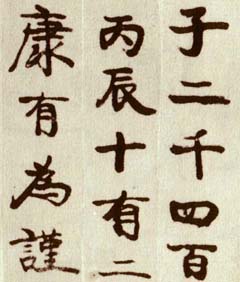 子二千四百
丙辰十有二
康有為謹